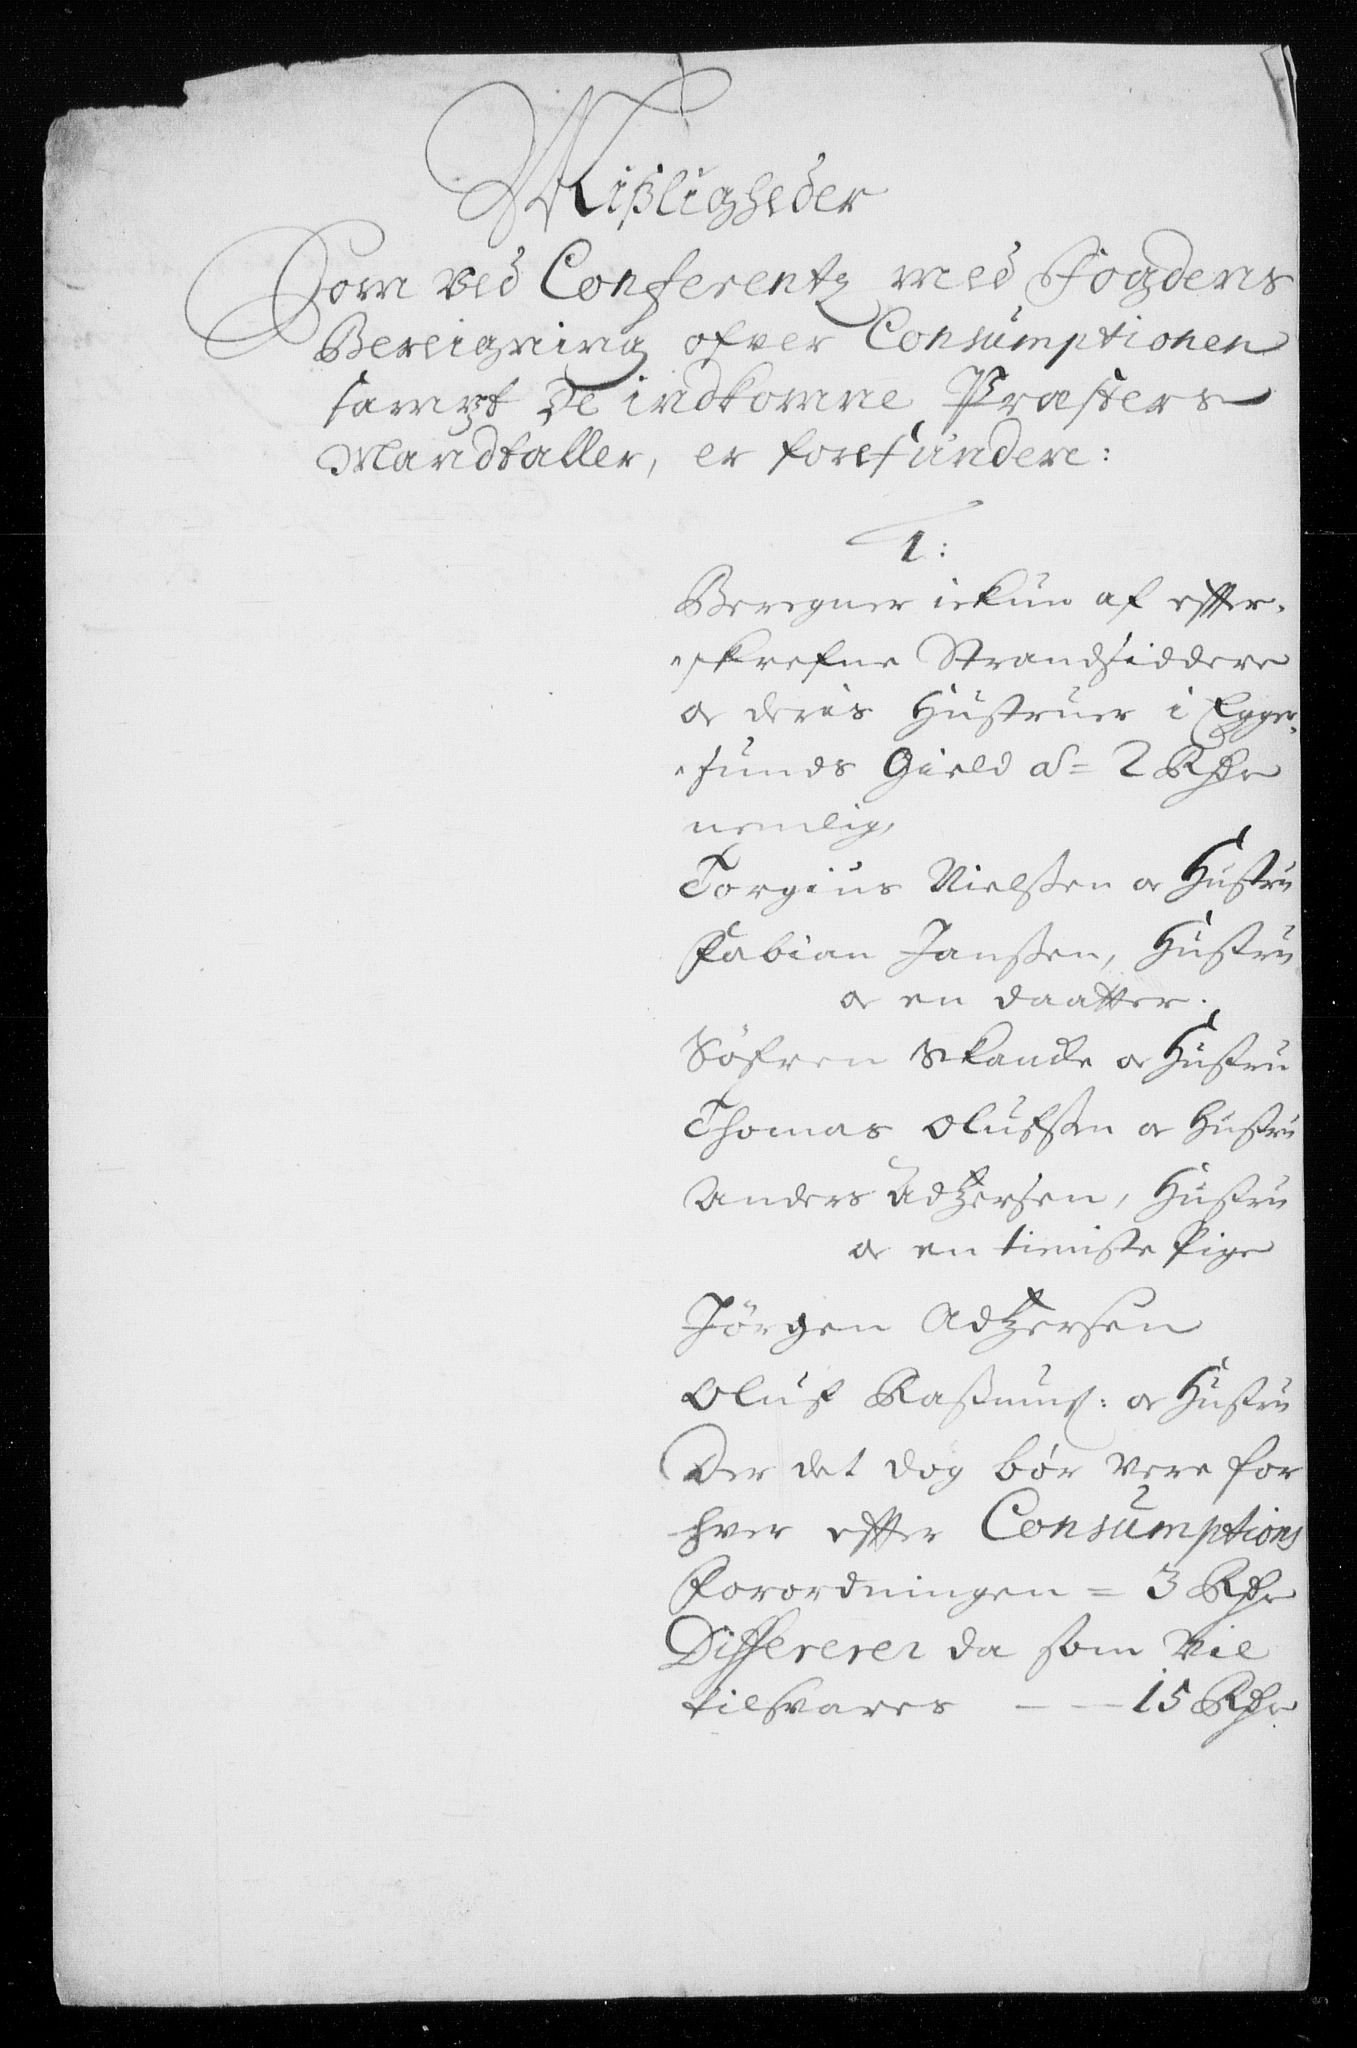 Mißligheder
Som ved Conferentz med Fogdens
Bereigning ofver Consumptionen
sampt De indkomne Præsters
Mandtaller, er forefunden:
1:
Beregner ickun af effter-
skrefne Strandsiddere
oc deris Hustruer i Egger-
sunds Gield à = 2 Rdr
nemlig,
Torgius Nielssen oc Hustru
Fabian Janssen, Hustru
oc en daatter.
Söfren Skancke oc Hustru
Thomas Olufssen oc Hustru
Anders Adtzersen, Hustru
oc en tieniste Pige
Jörgen Adtzersen
Oluf Raßmus: oc Hustru
Der det dog bör vere for
hver effter Consumptions
Forordningen = 3 Rdr
Differerer da som vil
tilsvares — — 15 Rdr